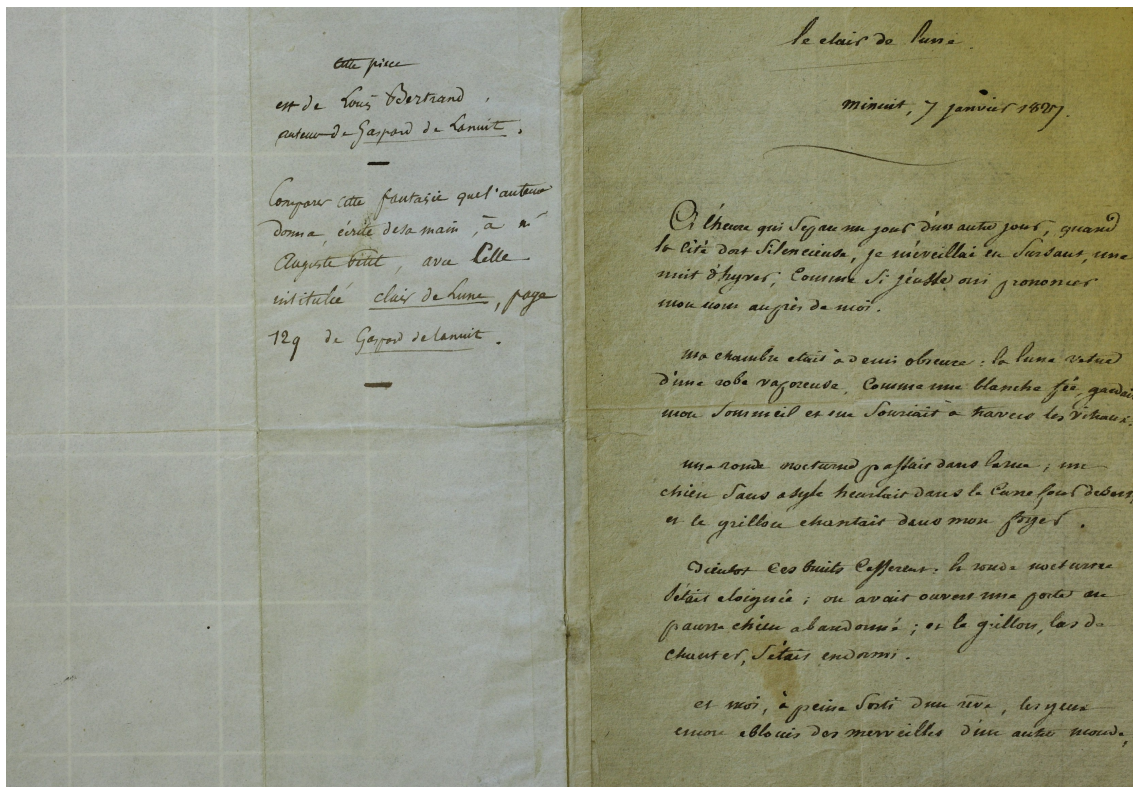 cette piece
est de Louis Bertrand,
auteur de Gaspard de Lanuit.
Comparer cette fantaisie que l'auteur
donna, écrite de sa main, à mr
Auguste Petit, avec celle
intitulée clair de Lune, page
129 de Gaspard de lanuit.
le clair de lune
minuit, 7 janvier 1827.
A l'heure qui sépare un jour d'un autre jour, quand
la cité dort silencieuse, je m'éveillai en sursaut, une
nuit d'hyver, comme si j'eusse oui prononcer
mon nom auprès de moi.
ma chambre etait à demi obscure: la lune vetue
d'une robe vaporeuse, comme une blanche fée, gardait
mon sommeil et me souriait à travers les vitraux.
une ronde nocturne passait dans la rue; un
chien sans asyle heurlait dans le carrefour desert,
et le grillon chantait dans mon foyer.
Bientot ces bruits cesserent: la ronde nocturne
s'était eloignée; on avait ouvert une porte au
pauvre chien abandonné; et le grillon, las de
chanter, s'était endormi.
et moi, à peine sorti d'un rêve, les yeux
encore eblouis des merveilles d'un autre monde,